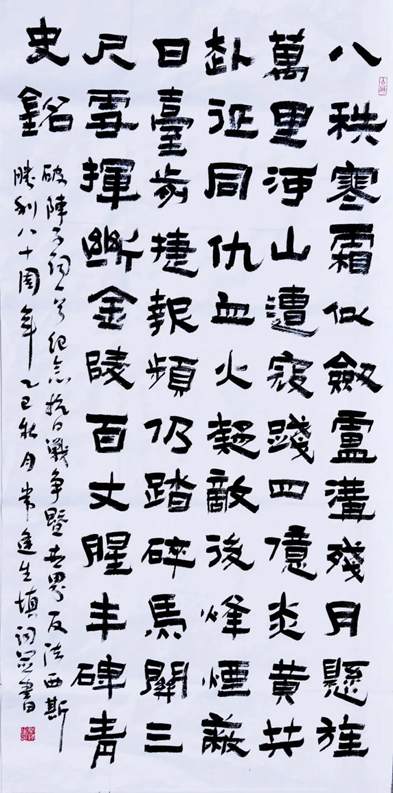 八秩寒霜似劍盧溝殘月懸旌
萬里河山遭寇踐四億炎黄共
赴征同仇血火赬敵後烽煙蔽
日臺前捷報頻仍踏碎馬關三
尺雪揮斷金陵百丈腥丰碑青
史銘
破陣子詞一首紀念抗日戰争暨世界反法西斯
勝利八十周年乙巳秋月常生填詞並書